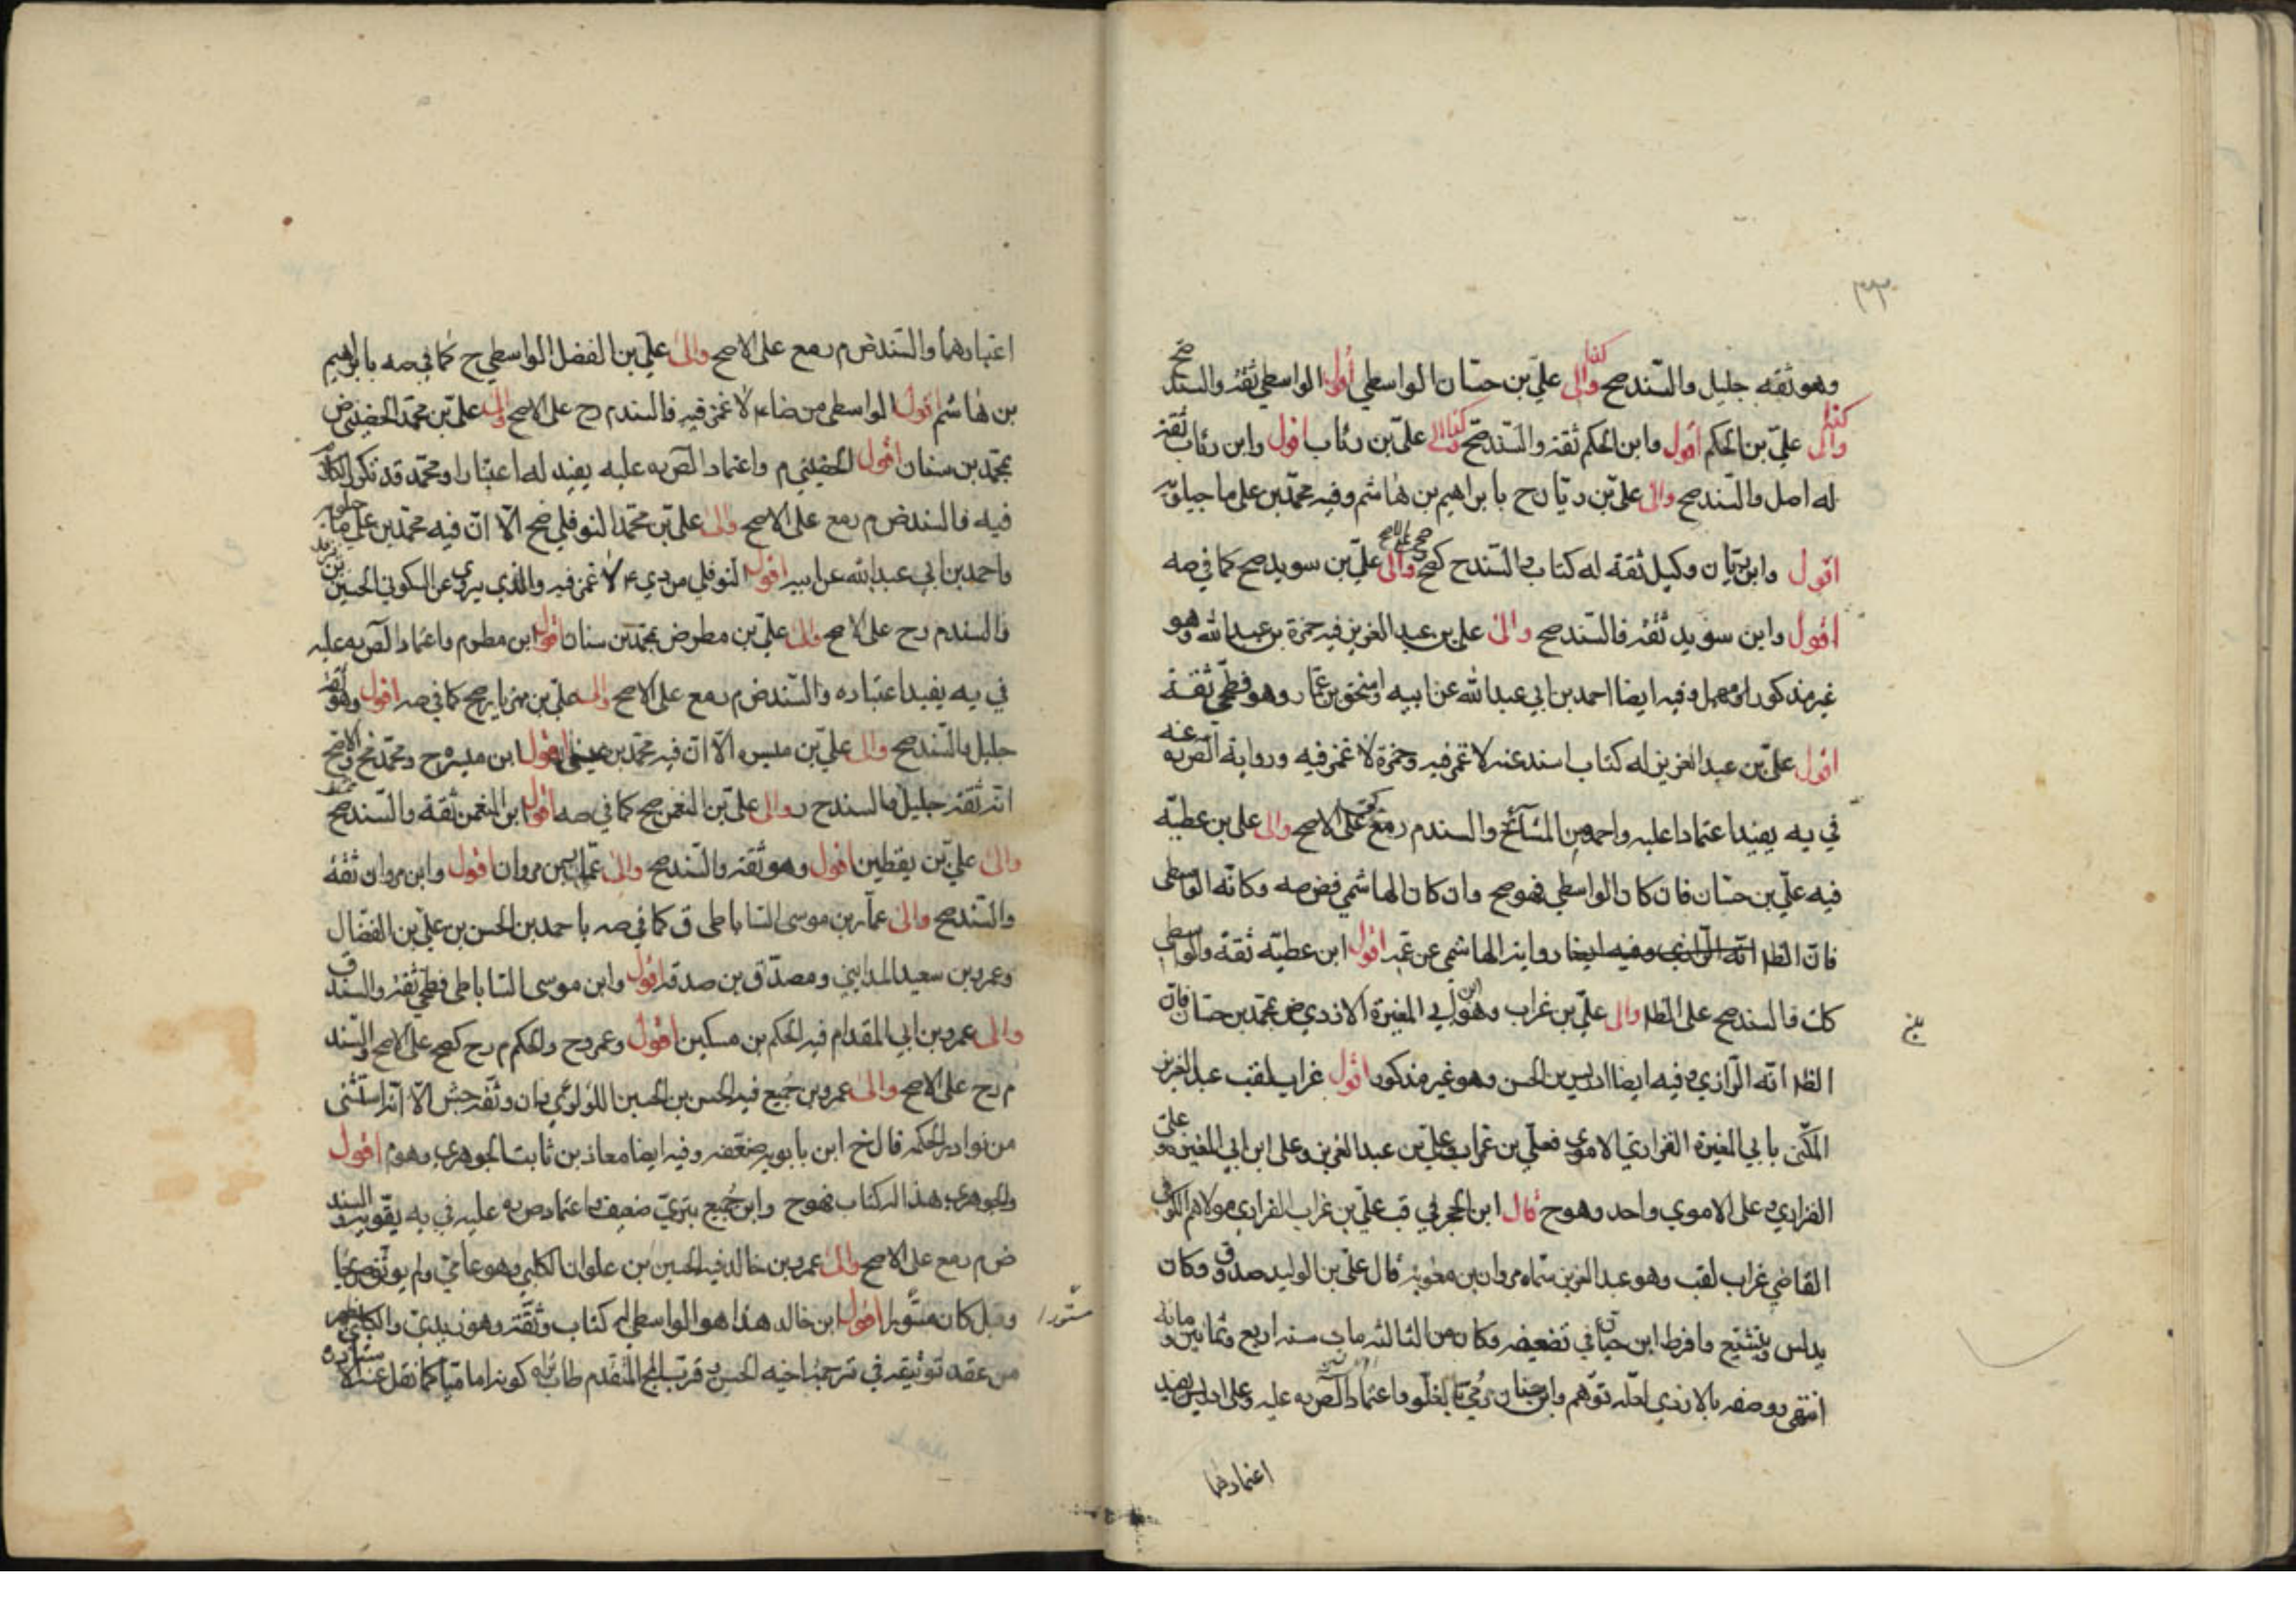 ٣٣٠
وهو ثقه جليل والسند صح والى علي بن حسان الواسطي اقول الواسطي ثقة والسند صح
والى علي بن الحكم اقول وابن الحكم ثقة والسند صح والى علي بن رئاب اقول وابن رئاب ثقة
له اصل والسند صح والى علي بن ريان ح بابراهيم بن هاشم وفيه محمد بن علي ماجيلويه
اقول وابن ريان وكيل ثقة له كتاب والسند ح كصح والى علي بن سويد صح كما في صه
اقول وابن سويد ثقة فالسند صح والى علي بن عبد العزيز فيه حمزة بن عبدالله وهو
غير مذكور او مهمل وفيه ايضا احمد بن ابي عبدالله عن ابيه واسحق بن عمار وهو فطحي ثقة
اقول علي بن عبد العزيز له كتاب اسند عنه لا غمز فيه وحمزة لا غمز فيه ورواية الص ره عنه
في يه يفيد اعتمادا عليه واحمد من المشائخ والسند م رمع على الاصح والى علي بن عطيه
فيه علي بن حسان فان كان الواسطي فهو صح وان كان الهاشمي فض صه وكانه الواسطي
فان الظ رواية الهاشمي عن عمه اقول ابن عطيه ثقة والواسطي
كك فالسند صح على الظ والى علي بن غراب وهو ابن ابي المغيرة الازدي ض بمحمد بن حسان فان
الظ انه الرازي وفيه ايضا ادريس بن الحسن وهو غير مذكور اقول غراب لقب عبد العزيز
المكنى بابي المغيرة الفزاري الاموي فعلي بن غراب وعلي بن عبد العزيز وعلي ابن ابي المغيرة وعلي
الفزاري وعلى الاموي واحد وهو ح قال ابن الحجر في قب علي بن غراب الفزاري مولاهم الكوفي
القاضي غراب لقب وهو عبد العزيز سماه مروان بن معوية قال علي بن الوليد صدوق وكان
يدلس ويتشيع وافرط ابن حبان في تضعيفه وكان من الثالثة مات سنه اربع وثمانين ومائه
انتهى ووصفه بالازدي لعله توهم وابن حسان رمي بالغلو واعتماد الص ره عليه وعلى ادريس يفيد
اعتبارهما
اعتبارهما والسند ض م رمع على الاصح والى علي بن الفضل الواسطي ح كما في صه بابراهيم
بن هاشم اقول الواسطي من ضا لا غمز فيه فالسند م رح على الاصح والى علي بن محمد الحضيني ض
بمحمد بن سنان اقول الحضيني م واعتماد الص ره عليه يفيد له اعتبارا ومحمد قد تكرر الكلام
فيه فالسند ض م رمع على الاصح والى علي بن محمد النوفلي ضح الا ان فيه محمد بن علي ماجيلويه
واحمد بن ابي عبدالله عن ابيه اقول النوفلي من دي لا غمز فيه والذي يروي عن السكوني الحسين بن يزيد
فالسند م رح على الاصح والى علي بن مطر ض بمحمد بن سنان اقول ابن مطر م واعتماد الص ره عليه
في يه يفيد اعتباره والسند ض م رمع على الاصح والى علي بن مهزيار صح كما في صه اقول وهو ثقة
جليل والسند صح والى علي بن ميسره الا ان فيه محمد بن عيسى اقول ابن ميسره ح ومحمد الاصح
انه ثقة جليل فالسند ح ر والى علي بن النعمن صح كما في صه اقول ابن النعمن ثقة والسند صح
والى علي بن يقطين اقول وهو ثقة والسند صح والى عمار بن مروان اقول وابن مروان ثقة
والسند صح والى عمار بن موسى الساباطي ق كما في صه باحمد بن الحسن بن علي بن الفضال
وعمرو بن سعيد المدايني ومصدق بن صدقه اقول وابن موسى الساباطي فطحي ثقة والسند ق
والى عمرو بن ابي المقدام فيه الحكم بن مسكين اقول وعمرو ح والحكم م رح كصح على الاصح والسند
م رح على الاصح والى عمرو بن جميع فيه الحسن بن الحسين اللولوئي وان وثقه جش الا انه استثنى
من نوادر الحكمه قال خ ابن بابويه ضعفه وفيه ايضا معاذ بن ثابت الجوهري وهو م اقول
والجوهري هذا له كتاب فهو ح وابن جميع بتري ضعيف واعتماد ص ره عليه في يه يقويه والسند
ض م رمع على الاصح والى عمرو بن خالد فيه الحسين بن علوان الكلبي وهو عامي ولم يوثق صريحا
وقيل كان مستورا اقول ابن خالد هذا هو الواسطي له كتاب وثقه وهو زيدي والكلبي
من عقد توثيقه في ترجمة اخيه الحسن قرب الحج المتقدم طاب ثراه كونه اماميا كما نقل عنه
مستورا